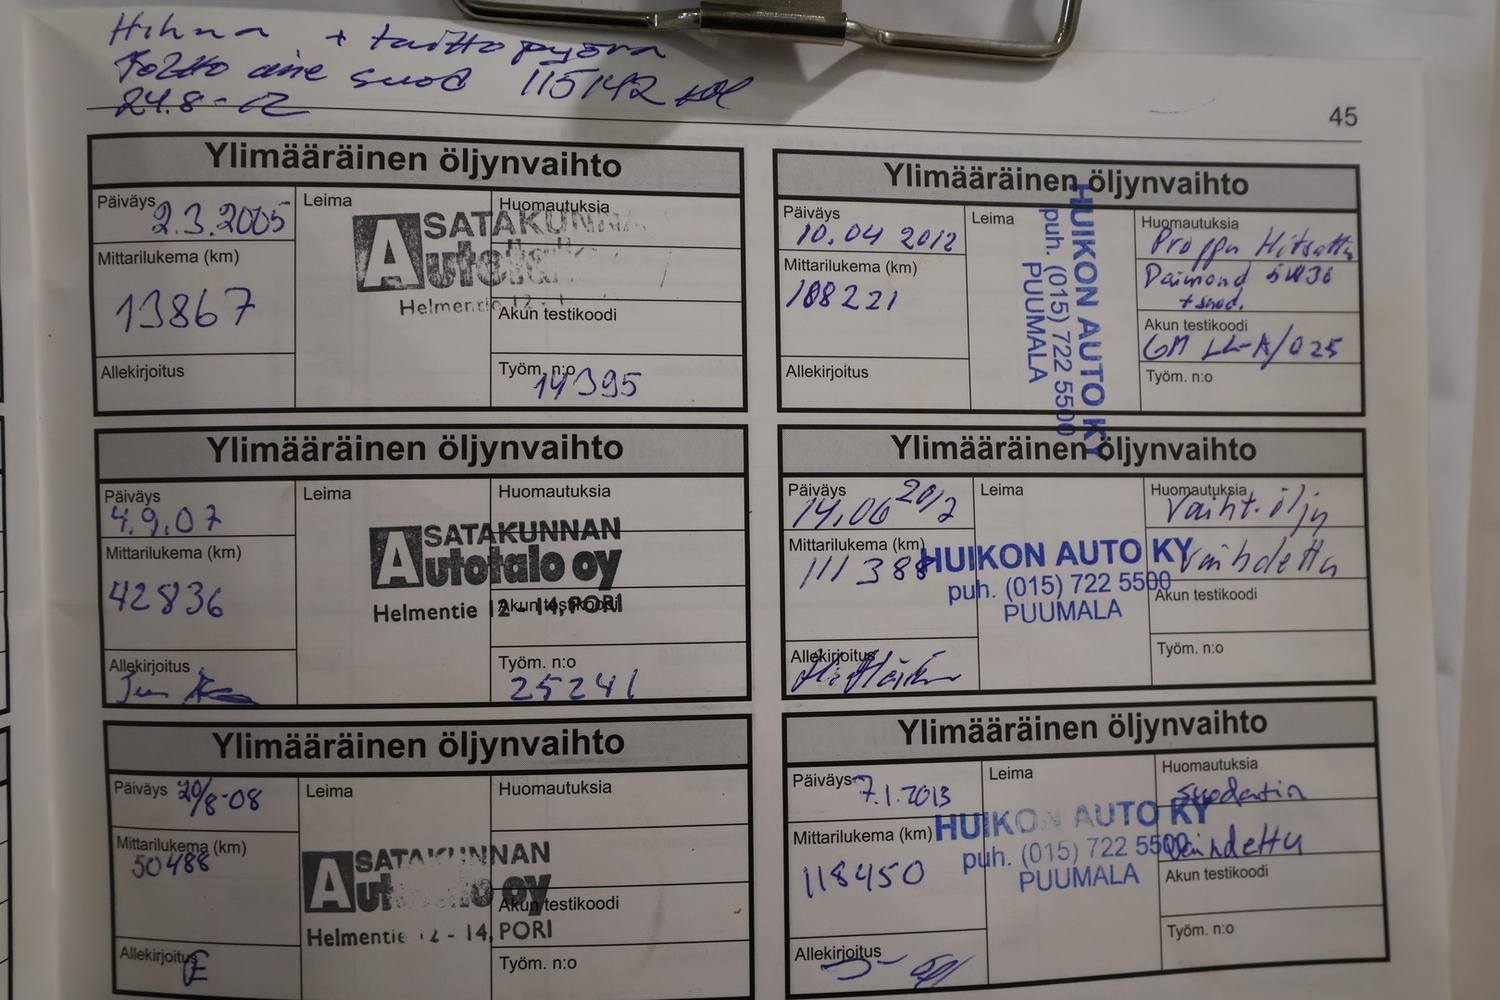 Hihna + taittopyörä
Poltto aine suod 115142
24.8-12
45
Ylimääräinen öljynvaihto
Päiväys 2.3.2005
Leima
Huomautuksia
SATAKUNNAN
Autotalo
Helmentie 12 -
Mittarilukema (km)
13867
Akun testikoodi
Allekirjoitus
Työm. n:o
14395
Ylimääräinen öljynvaihto
Päiväys
4.9.07
Leima
Huomautuksia
SATAKUNNAN
Autotalo oy
Helmentie 12 - 14, PORI
Mittarilukema (km)
42836
Akun testikoodi
Allekirjoitus
Työm. n:o
25241
Ylimääräinen öljynvaihto
Päiväys 20/8-08
Leima
Huomautuksia
Mittarilukema (km)
50488
SATAKUNNAN
Autotalo oy
Helmentie 12 - 14, PORI
Akun testikoodi
Allekirjoitus
Työm. n:o
Ylimääräinen öljynvaihto
Päiväys
10.04 2012
Leima
HUIKON AUTO KY
puh. (015) 722 5500
PUUMALA
Huomautuksia
Proppu Hitsattu
Daimond 5W30
+ suod.
Mittarilukema (km)
108221
Akun testikoodi
GM LL-A/025
Allekirjoitus
Työm. n:o
Ylimääräinen öljynvaihto
Päiväys
14.06 2012
Leima
Huomautuksia
Vaiht. öljy
Vaihdettu
Mittarilukema (km)
111388
HUIKON AUTO KY
puh. (015) 722 5500
PUUMALA
Akun testikoodi
Allekirjoitus
Työm. n:o
Ylimääräinen öljynvaihto
Päiväys 7.1.2013
Leima
Huomautuksia
suodatin
Vaihdettu
Mittarilukema (km)
118450
HUIKON AUTO KY
puh. (015) 722 5500
PUUMALA
Akun testikoodi
Allekirjoitus
Työm. n:o